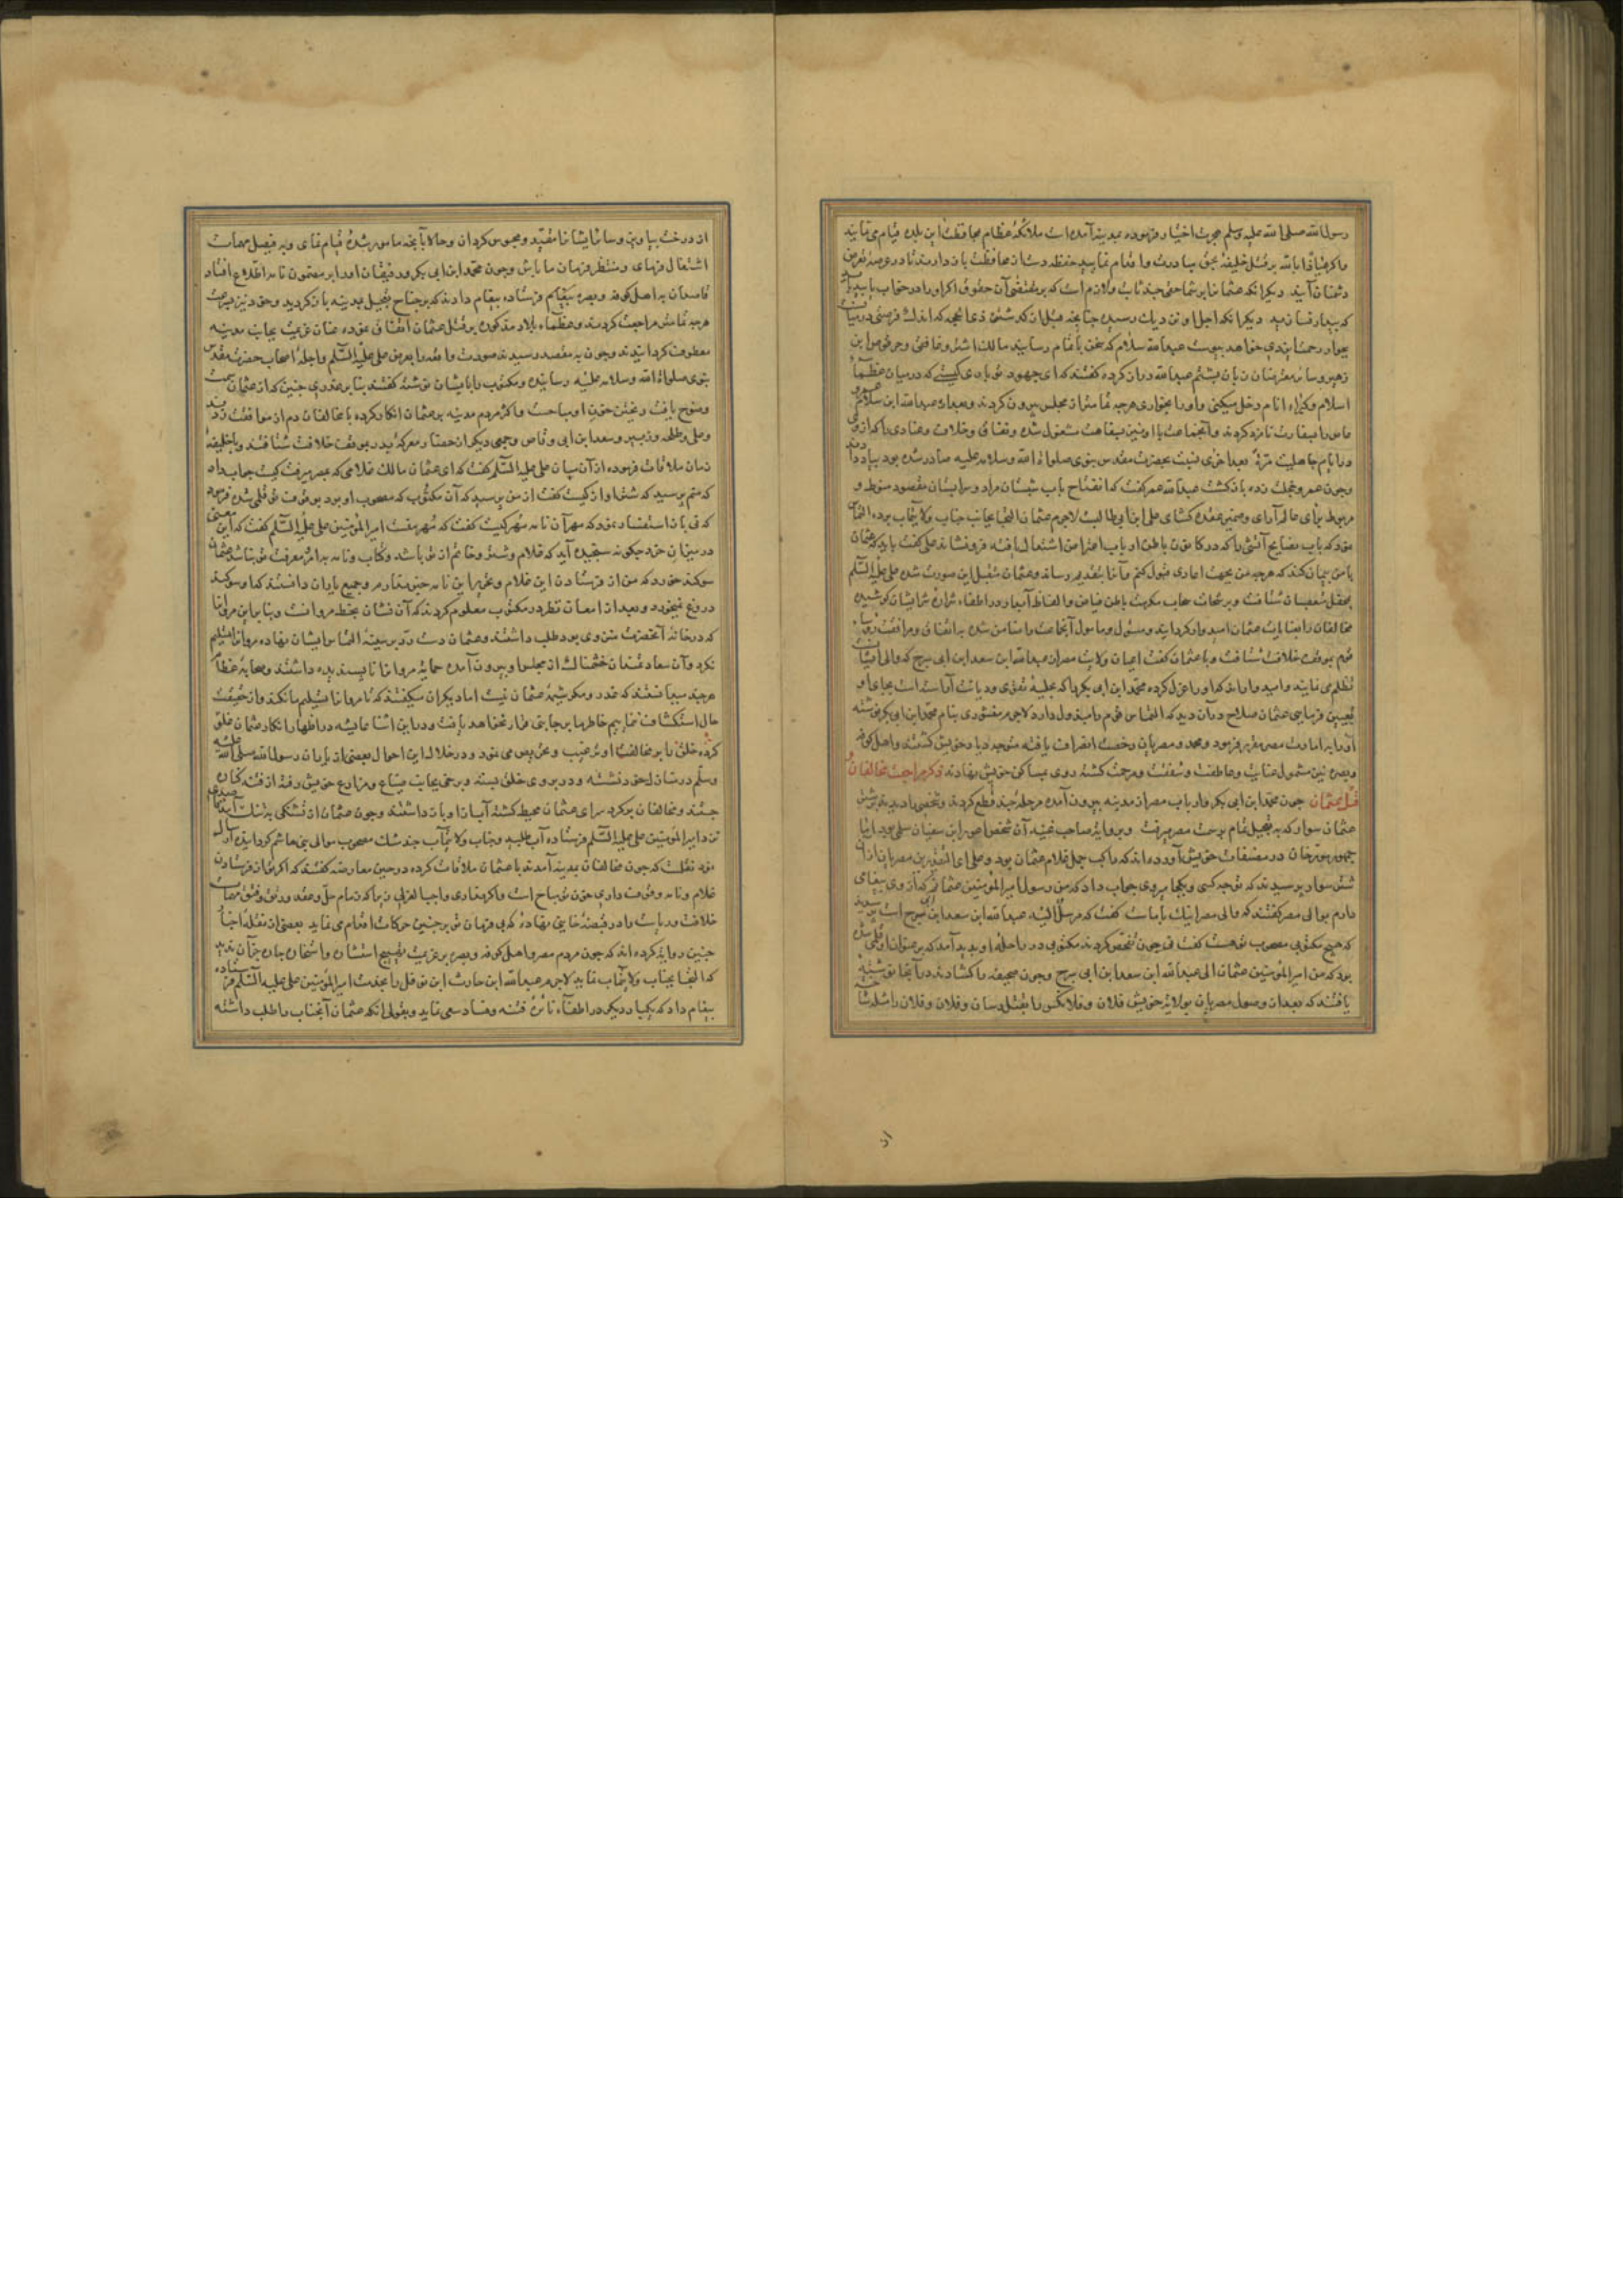 رسول الله صلی الله علیه وسلم هجرت اختیار فرموده بمدینه آمده است ملائکه عظام محافظت این بلده قیام می نمایند
و اگر عیاذا بالله بر قتل خلیفه بحق مبادرت و اقدام نمایید حفظه دست از محافظت باز دارند تا در عرصه تعرض
دشمنان آیند دیگر آنکه عثمان را بر شما حقی چند ثابت و لازم است که بر مقتضی آن حقوق اگر او را در خواب یابید باید
که بیدار نسازید دیگر آنکه اجل او نزدیک رسیده چنانچه قبل از گذشتن ذی الحجه که اندک فرصتی در میان
بجوار رحمت ایزدی خواهد پیوست عبدالله سلام که سخن باتمام رسانید مالک اشتر و غافقی و حرقوص ابن
زهیر و سایر معترضان زبان بشتم عبدالله دراز کرده گفتند که ای جهود تو باری کیستی که در میان عظماء
اسلام و کبراء انام دخل میکنی و او را بخواری هرچه تمامتر از مجلس بیرون کردند و بعد از عبدالله ابن سلام عمرو
عاص را بسفارت نامزد کردند و آنجماعت با او نیز بسفاهت مشغول شده و نفاق و خلاف و عنادی را که از وی
در ایام جاهلیت مرة بعد اخری نسبت بحضرت مقدس نبوی صلواة الله و سلامه علیه صادر شده بود بیاد دادند
و چون عمرو خجلت زده بازگشت عبدالله عمر گفت که انفتاح باب شبستان مراد و سرابستان مقصود منوط و
مربوط برای عالم آرای و ضمیر عقده گشای علی ابن ابوطالب است لاجرم عثمان التجا بجانب جناب ولایت مآب برده التماس
نمود که بآب نصایح آتشی را که در کانون باطن ارباب اعتراض اشتعال یافته فرونشاند علی گفت باید که عثمان
با من پیمان کند که هرچه من بجهت اعادی قبول کنم و آنرا بتقدیم رساند و عثمان متقبل این صورت شده علی علیه السلام
بمحفل متعصبان شتافت و برشحات سحاب مکرمت باطن فیاض و الفاظ آبدار در اطفاء شراره شر ایشان کوشیده
مخالفان را بعنایات عثمان امیدوار گردانید و مسئول و مامول آنجماعت را ضامن شده باتفاق و مرافقت رؤساء
قوم بموقف خلافت شتافت و با عثمان گفت اعیان ولایت مصر از عبدالله ابن سعد ابن ابی سرح که والی ایشان است
تظلم می نمایند و امیدوارند که او را عزل کرده محمد ابن ابی بکر را که بحلیه تقوی و دیانت آراسته است بجای او
تعیین فرمایی عثمان صلاح در آن دید که التماس قوم را مبذول دارد لاجرم منشوری بنام محمد ابن ابی بکر نوشته
او را بامارت مصر مقرر فرمود و محمد و مصریان رخصت انصراف یافته متوجه دیار خویش گشتند و اهل کوفه
و بصره نیز مشمول عنایت و عاطفت و شفقت و مرحمت گشته روی بمساکن خویش نهادند ذکر مراجعت مخالفان و
قتل عثمان چون محمد ابن ابی بکر و ارباب مصر از مدینه بیرون آمده مرحله چند قطع کردند شخصی را دیدند بر شتر
عثمان سوار که به تعجیل تمام بر سمت مصر میرفت و بروایة صاحب غنیه آن شخص اعور ابن سفیان سلمی بود اما
جمهور مورخان در مصنفات خویش آورده اند که راکب جمل غلام عثمان بود و علی ای التقدیرین مصریان از آن
شتر سوار پرسیدند که توچه کسی و بکجا میروی جواب داد که من رسول امیرالمؤمنین عثمانم که از وی پیغامی
دارم بوالی مصر گفتند که والی مصر اینک با ماست گفت که مرسل الیه عبدالله ابن سعد ابن ابی سرح است پرسیدند
که هیچ مکتوبی مصحوب تو هست گفت نی چون تفحص کردند مکتوبی در راحله او پدید آمد که بر عنوان او قلمی شده
بود که من امیرالمؤمنین عثمان الی عبدالله ابن سعد ابن ابی سرح و چون صحیفه را گشادند در آنجا نوشته
یافتند که بعد از وصول مصریان بولایة خویش فلان و فلان کس را بقتل رسان و فلان و فلان را مثله ساخته
از درخت بیاویز و سائر ایشان را مقید و محبوس گردان و حالا بآنچه مامور شده قیام نمای و به فیصل مهمات
اشتغال فرمای و منتظر فرمان ما باش و چون محمد ابن ابی بکر و رفیقان او را بر مضمون نامه اطلاع افتاد
قاصدان به اهل کوفه و بصره به پیغام فرستاده پیغام دادند که بر جناح تعجیل بمدینه بازگردید و خود نیز بسرعت
هرچه تمامتر مراجعت کردند و عظماء بلاد مذکوره بر قتل عثمان اتفاق نموده عنان عزیمت بجانب مدینه
معطوف گردانیدند و چون به مقصد رسیدند صورت واقعه را بعرض علی علیه السلم و اجله اصحاب حضرت مقدس
نبوی صلواة الله و سلامه علیه رسانیده و مکتوب را بایشان نموده گفتند بنابر غدری چنین که از عثمان سمت
وضوح یافت ریختن خون او مباحست و اکثر مردم مدینه بر عثمان انکار کرده با مخالفان دم از موافقت زدند
و علی و طلحه و زبیر و سعد ابن ابی وقاص و جمعی دیگر از حضار معرکه بدر بموقف خلافت شتافتند و با خلیفه
زمان ملاقات فرموده از آن میان علی علیه السلم گفت که ای عثمان مالک غلامی که بمصر میرفت کیست جواب داد
که منم پرسید که شتر او از کیست گفت از من پرسید که آن مکتوب که مصحوب او بود بوقوف تو قلمی شده فرمود
که نی باز استفسار نمود که مهر آن نامه مهر کیست گفت که مهر منست امیرالمؤمنین علی علیه السلم گفت که این معنی
در میزان خرد چگونه سنجیده آید که غلام و شتر و خاتم از تو باشد و کتاب و نامه بدانرا معرفت تو نباشد عثمان
سوگند خورد که من از فرستادن این غلام و تحریر این نامه خبر ندارم و جمیع یاران دانستند که او سوگند
دروغ نمیخورد و بعد از امعان نظر در مکتوب معلوم کردند که آن نشان بخط مروانست و بنابراین مروان را
که در خانه آنحضرت متواری بود طلب داشتند و عثمان دست رد بر سینه التماس ایشان نهاده مروانرا تسلیم
نکرد و آن سعادتمندان خشمناک از مجلس او بیرون آمده حمایت مروان را ناپسندیده داشتند و صحابه عظام
هرچند میدانستند که غدر و مکر شیوه عثمان نیست اما دیگران میگفتند که تا مروان را تسلیم ما نکند و از حقیقت
حال استکشاف ننماییم خاطرها بر جای قرار نخواهد یافت و در این اثنا عایشه در اظهار انکار عثمان غلو
کرده خلق را بر مخالفت او ترغیب و تحریص می نمود و در خلال این احوال بعضی از یاران رسول الله صلی الله علیه
وسلم در منازل خود نشسته و در بروی خلق بسته و برخی بجانب ضیاع و مزارع خویش رفته از فتنه کران
جستند و مخالفان بر گرد سرای عثمان محیط گشته آب ازو باز داشتند و چون عثمان از تشنگی به تنک آمد
نزد امیرالمؤمنین علی علیه السلم فرستاده آب طلبید و جناب ولایت مآب چند مشک مصحوب موالی بنی هاشم گردانیده ارسال
نمود نقلست که چون مخالفان بمدینه آمدند با عثمان ملاقات کرده در حین معارضه گفتند که اگر تو از فرستادن
غلام و نامه وقوف داری خون تو مباح است و اگر نداری واجب العزلی زیرا که زمام حل و عقد و رتق و فتق مهمات
خلافت و ریاست را در قبضه خاینی نهاده که بی فرمان تو بر چنین حرکات اقدام می نماید بعضی از نقله اخبار
چنین روایة کرده اند که چون مردم مصر و اهل کوفه و بصره بر عزیمت
که التجا بجناب ولایت مآب نماید لاجرم عبدالله ابن حارث ابن نوفل را بخدمت امیرالمؤمنین علی علیه السلم فرستاده
پیغام داد که یکبار دیگر در اطفاء نائره فتنه و فساد سعی نماید و بقولی آنکه عثمان آنجناب را طلب داشته